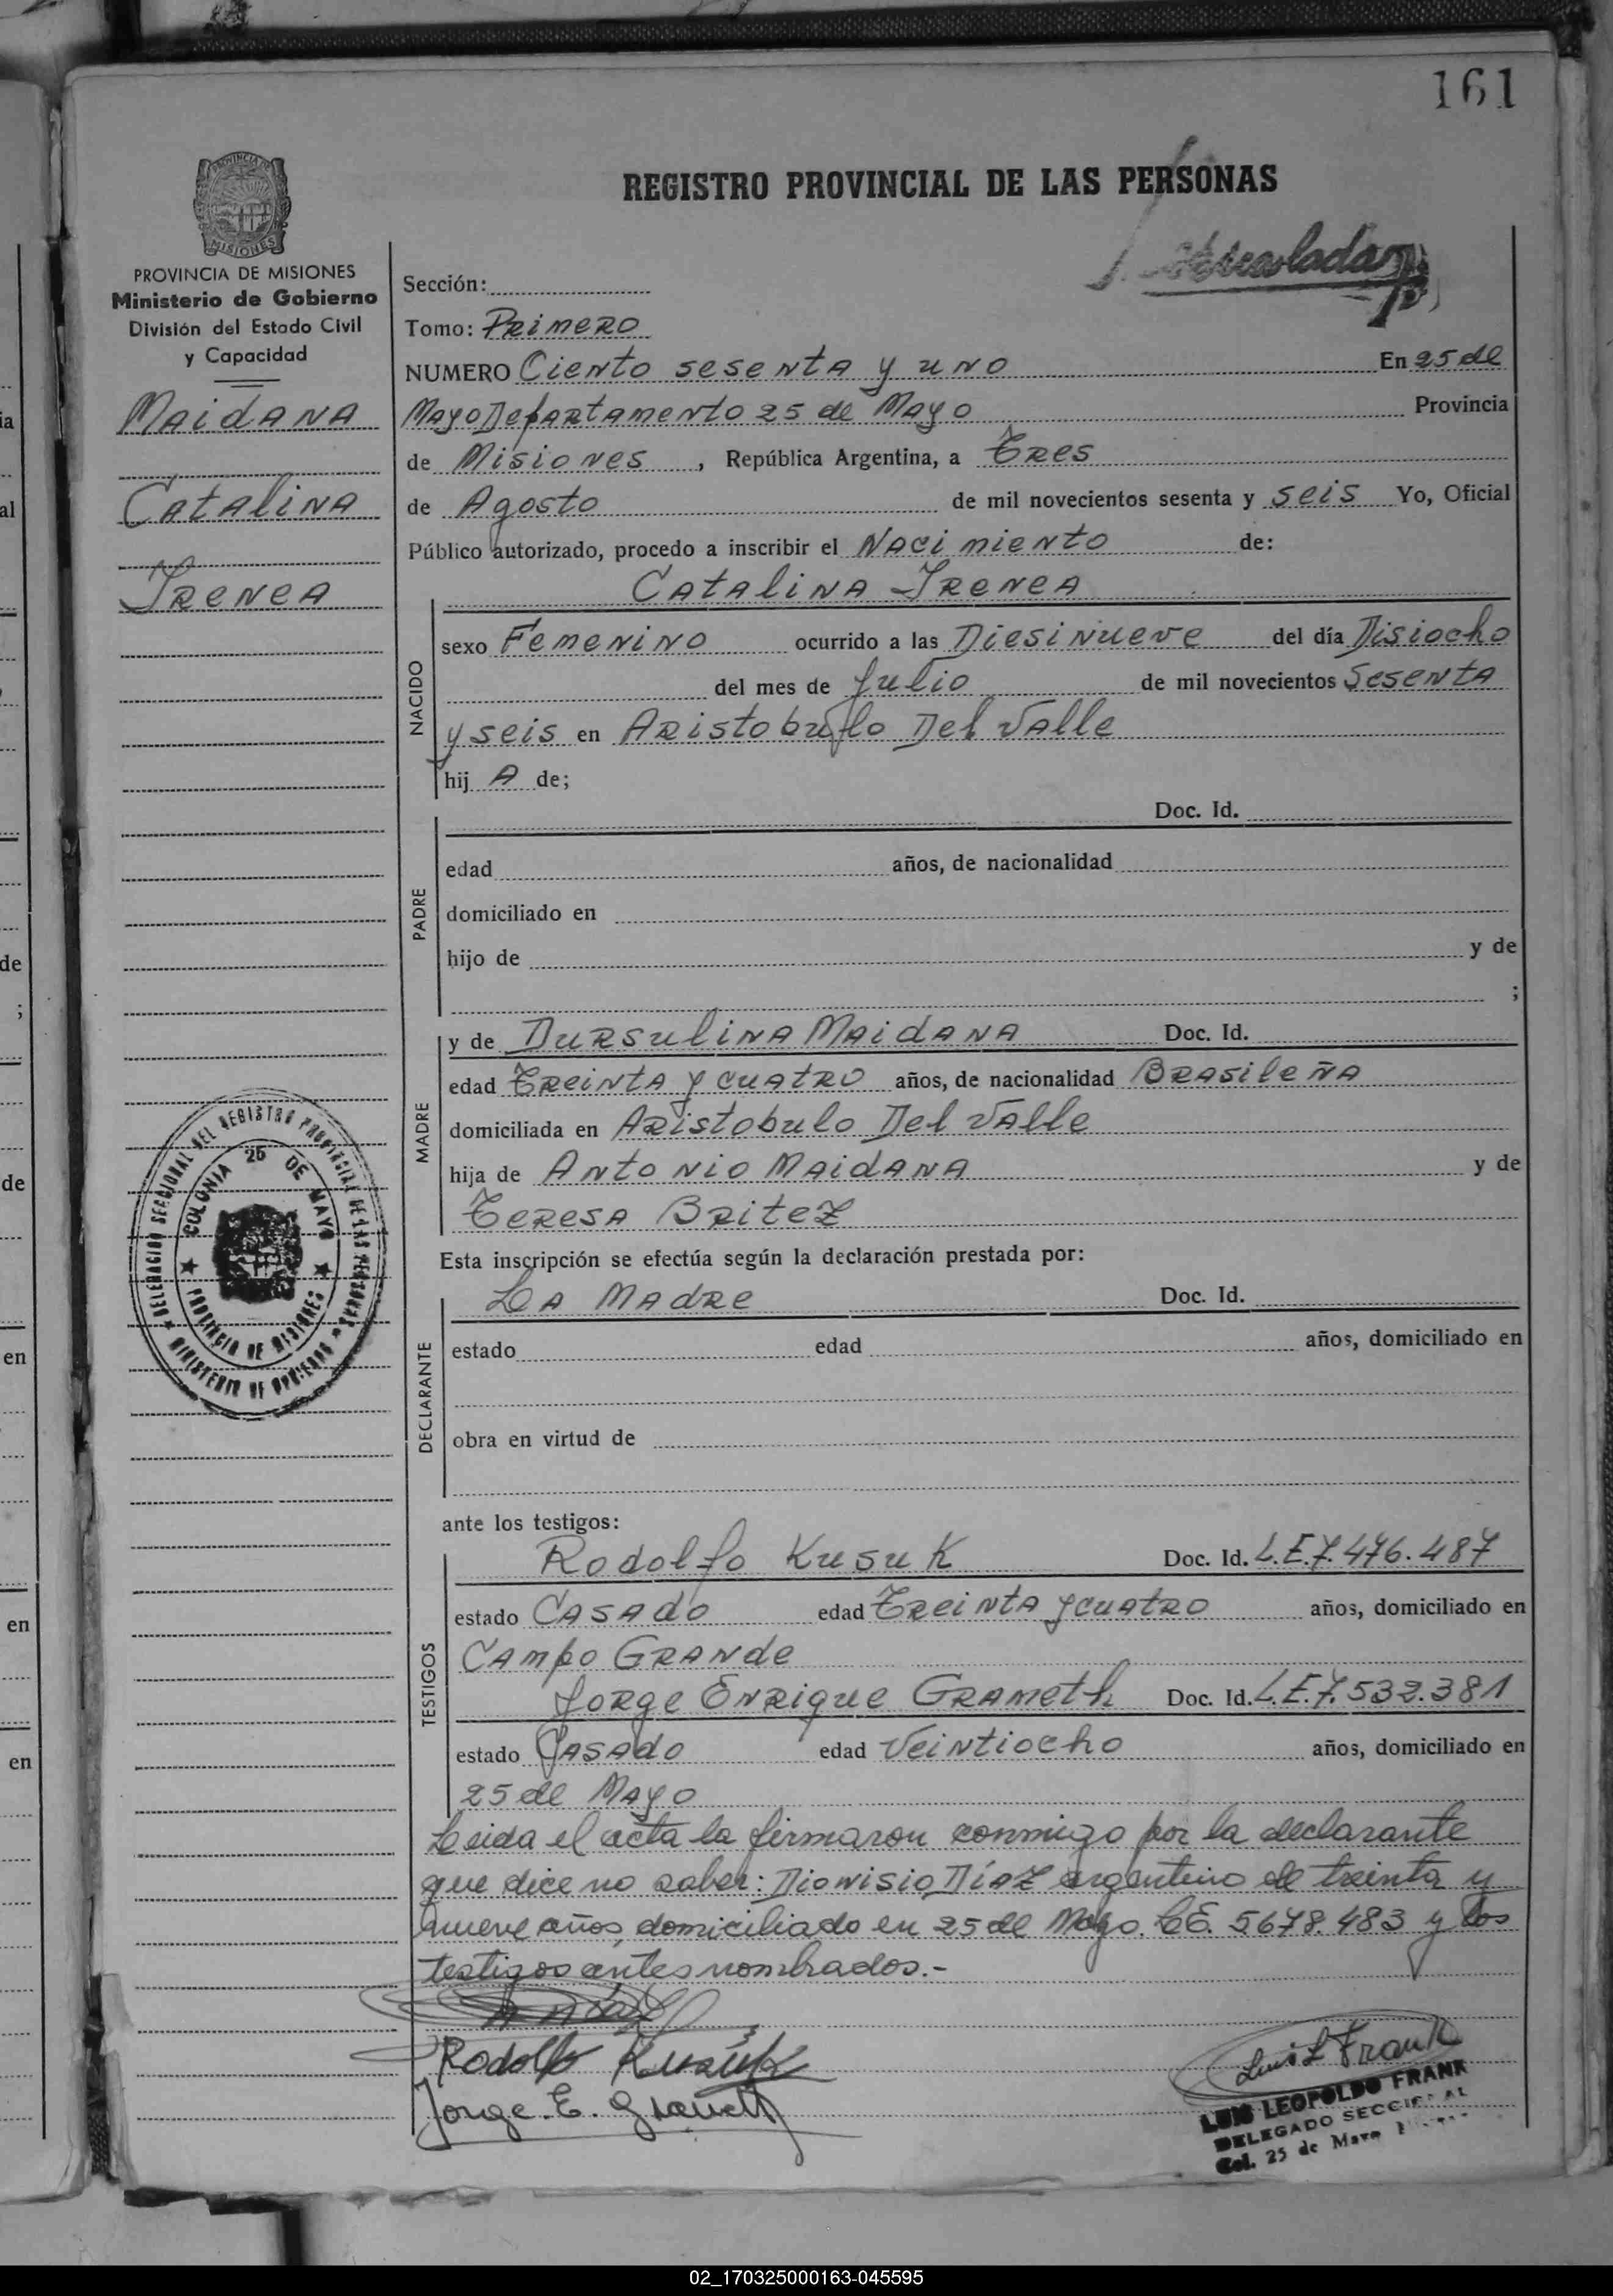 161
REGISTRO PROVINCIAL DE LAS PERSONAS
PROVINCIA DE MISIONES
Ministerio de Gobierno
División del Estado Civil
y Capacidad
Maidana
Catalina
Irenea
Sección:
Tomo: Primero
NUMERO Ciento sesenta y uno En 25 de
Mayo Departamento 25 de Mayo Provincia
de Misiones, República Argentina, a Tres
de Agosto de mil novecientos sesenta y seis Yo, Oficial
Público autorizado, procedo a inscribir el Nacimiento de:
Catalina Irenea
NACIDO
sexo Femenino ocurrido a las Diesinueve del día Disiocho
del mes de Julio de mil novecientos Sesenta
y seis en Aristobulo Del Valle
hij A de;
PADRE
Doc. Id.
edad años, de nacionalidad
domiciliado en
hijo de y de
;
MADRE
y de Dursulina Maidana Doc. Id.
edad Treinta y cuatro años, de nacionalidad Brasileña
domiciliada en Aristobulo Del Valle
hija de Antonio Maidana y de
Teresa Britez
Esta inscripción se efectúa según la declaración prestada por:
DECLARANTE
La Madre Doc. Id.
estado edad años, domiciliado en
obra en virtud de
ante los testigos:
TESTIGOS
Rodolfo Kusuk Doc. Id. L.E.7.476.487
estado Casado edad Treinta y cuatro años, domiciliado en
Campo Grande
Jorge Enrique Grameth Doc. Id. L.E.7.532.381
estado Casado edad Veintiocho años, domiciliado en
25 de Mayo
Leida el acta la firmaron conmigo por la declarante
que dice no saber: Dionisio Díaz argentino de treinta y
nueve años, domiciliado en 25 de Mayo. L.E. 5678.483 y los
testigos antes nombrados.-
Rodolfo Kusuk
Jorge. E.
Luis L Frank
LUIS LEOPOLDO FRANK
DELEGADO SECCIONAL
Col. 25 de Mayo
DELEGACION SECCIONAL DEL REGISTRO PROVINCIAL DE LAS PERSONAS
MINISTERIO DE GOBIERNO
COLONIA 25 DE MAYO
PROVINCIA DE MISIONES
02_170325000163-045595